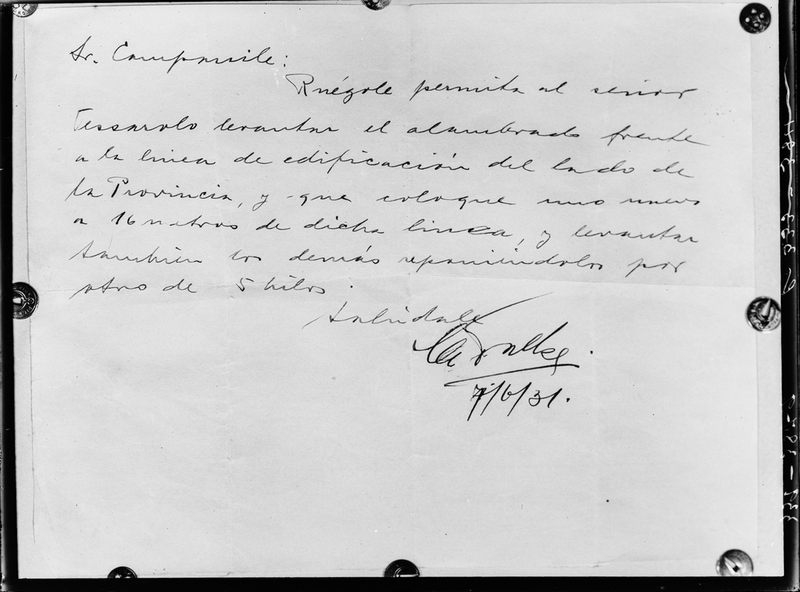 Sr. Campomile:
Ruégole permita al señor
Tessarolo levantar el alambrado frente
a la linea de edificación del lado de
la Provincia, y que coloque uno nuevo
a 16 metros de dicha linea, y levantar
tambien los demás reponiéndolos por
otro de 5 hilos.
Salúdale
7/6/31.